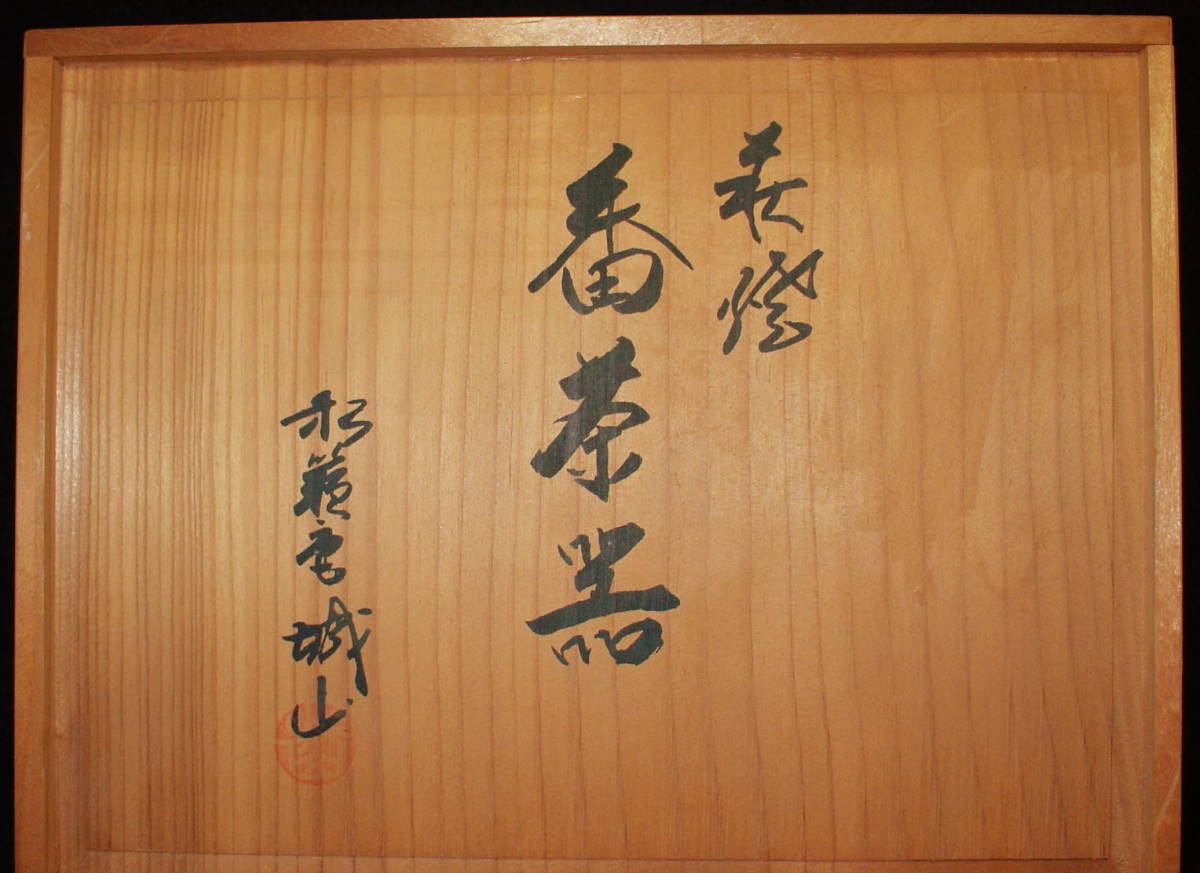 萩焼
番茶器
松籟庵城山